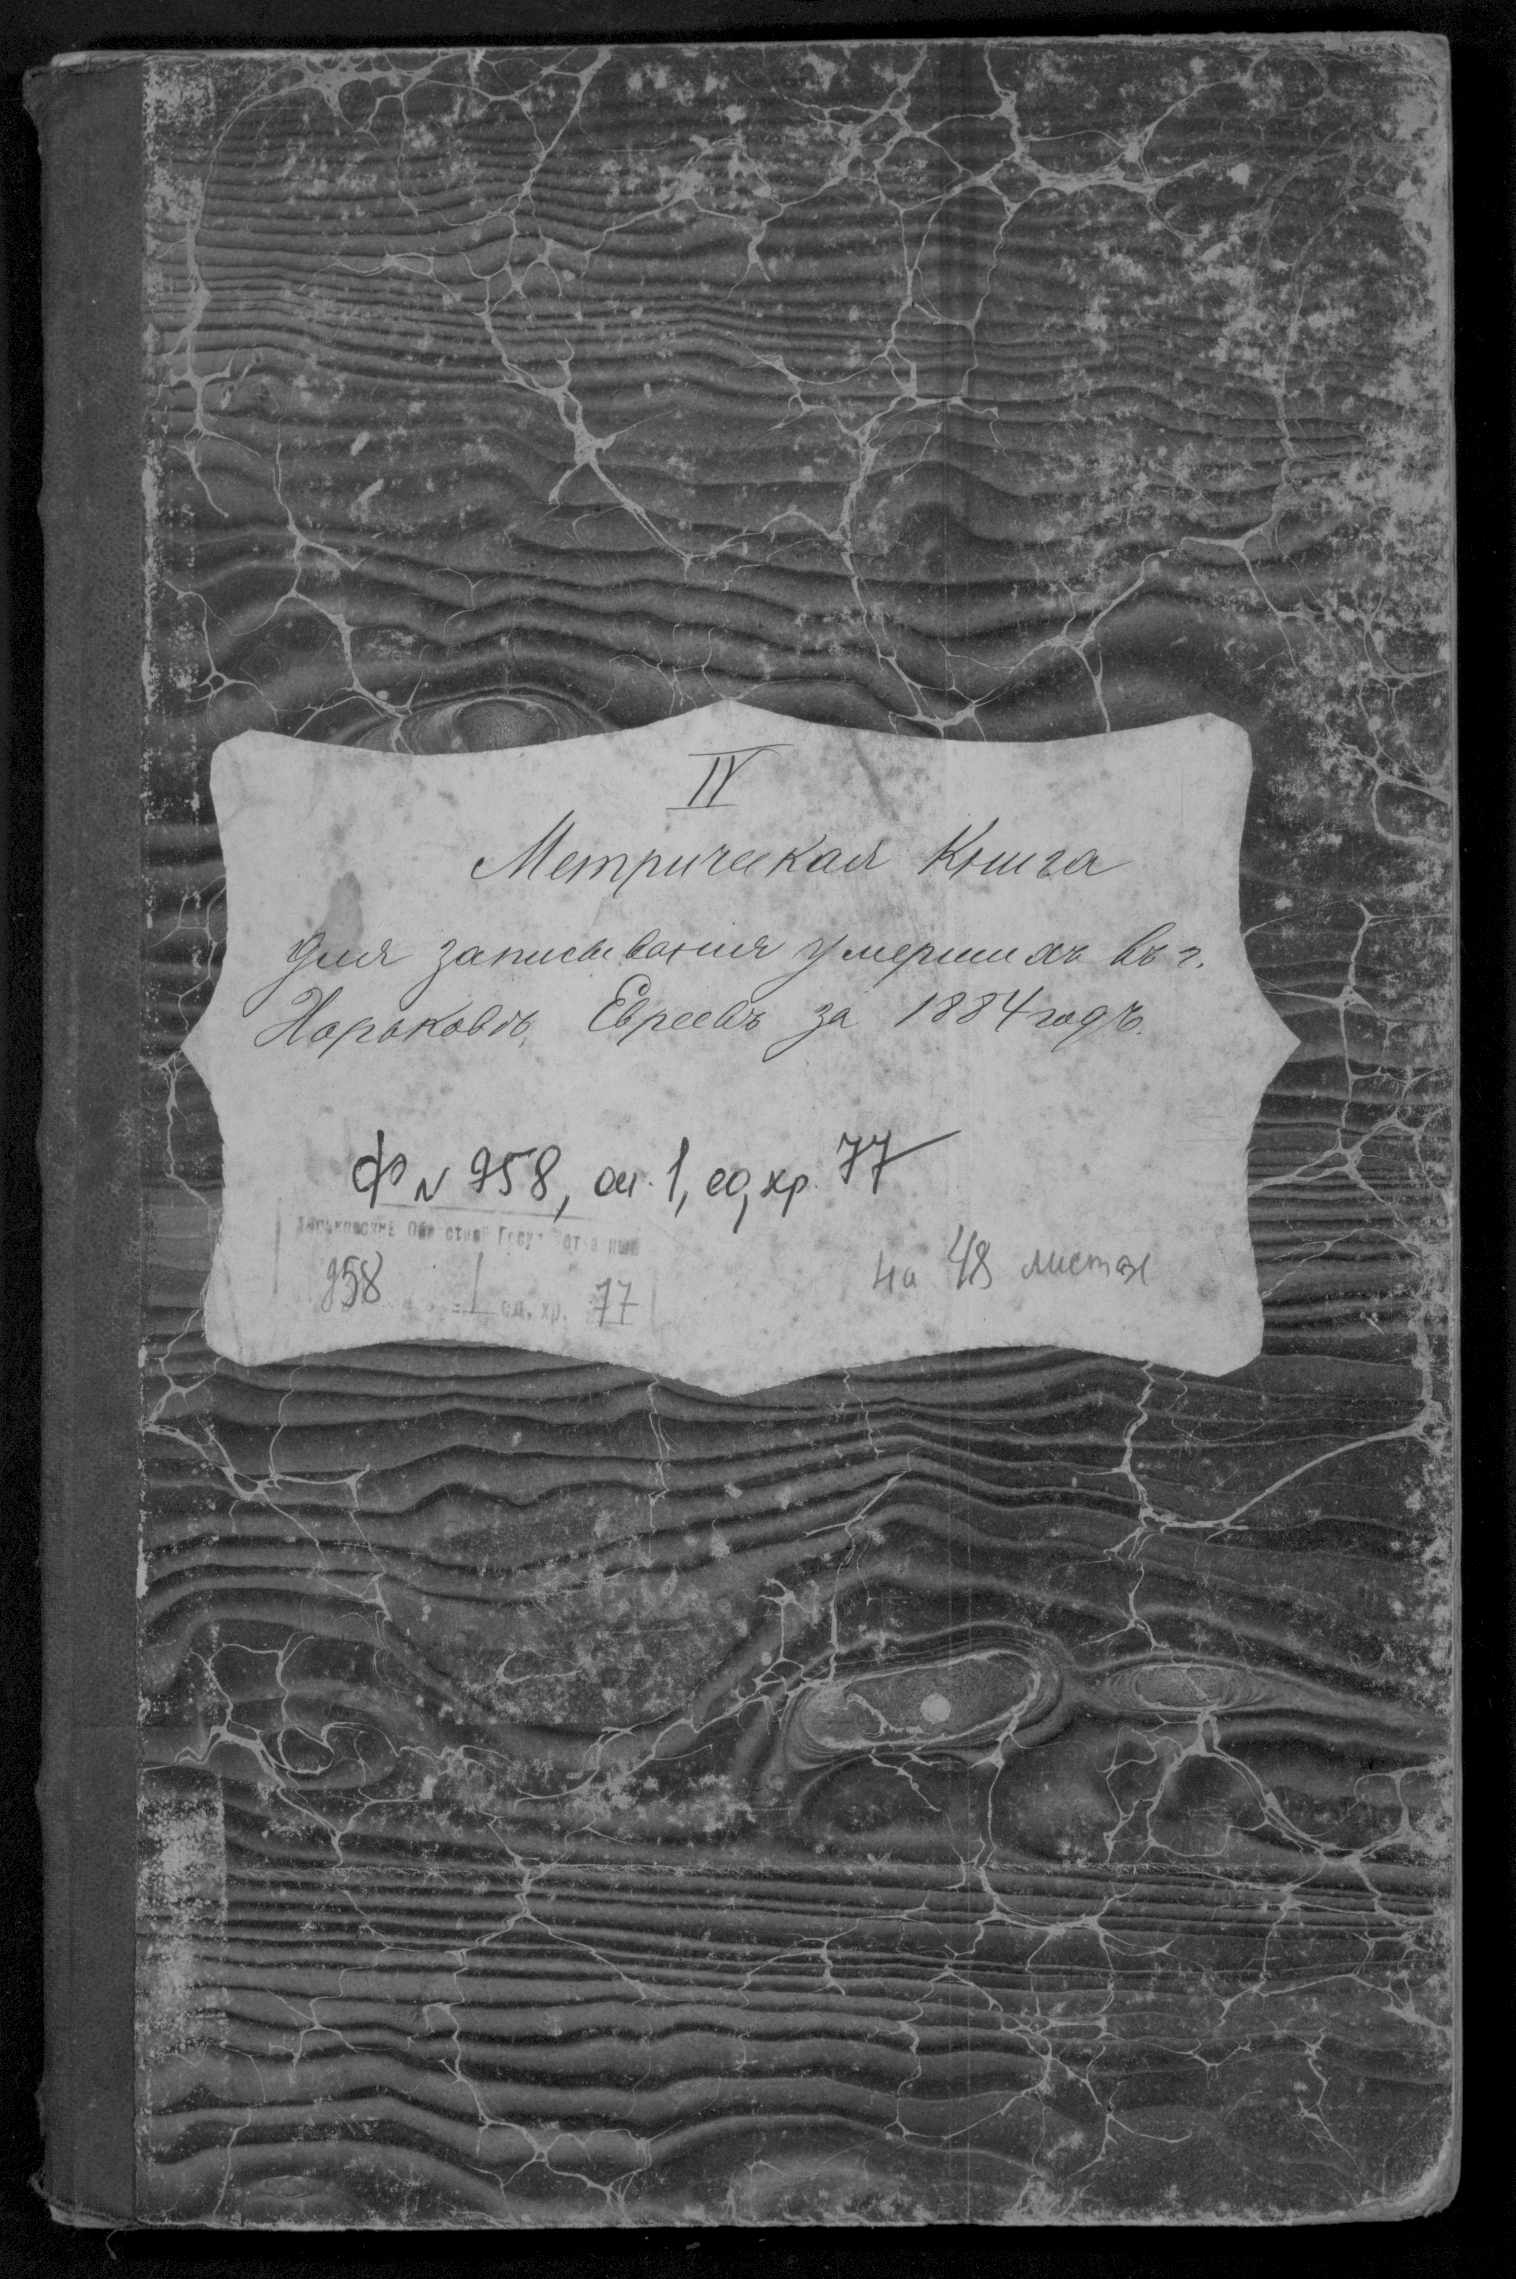 IV
Метрическая Книга
для записыванія умершихъ въ г.
Харьковѣ, Евреевъ за 1884 годъ.
Ф N 958, оп. 1, ед, хр. 77
958 1 ед. хр. 77
на 48 листах